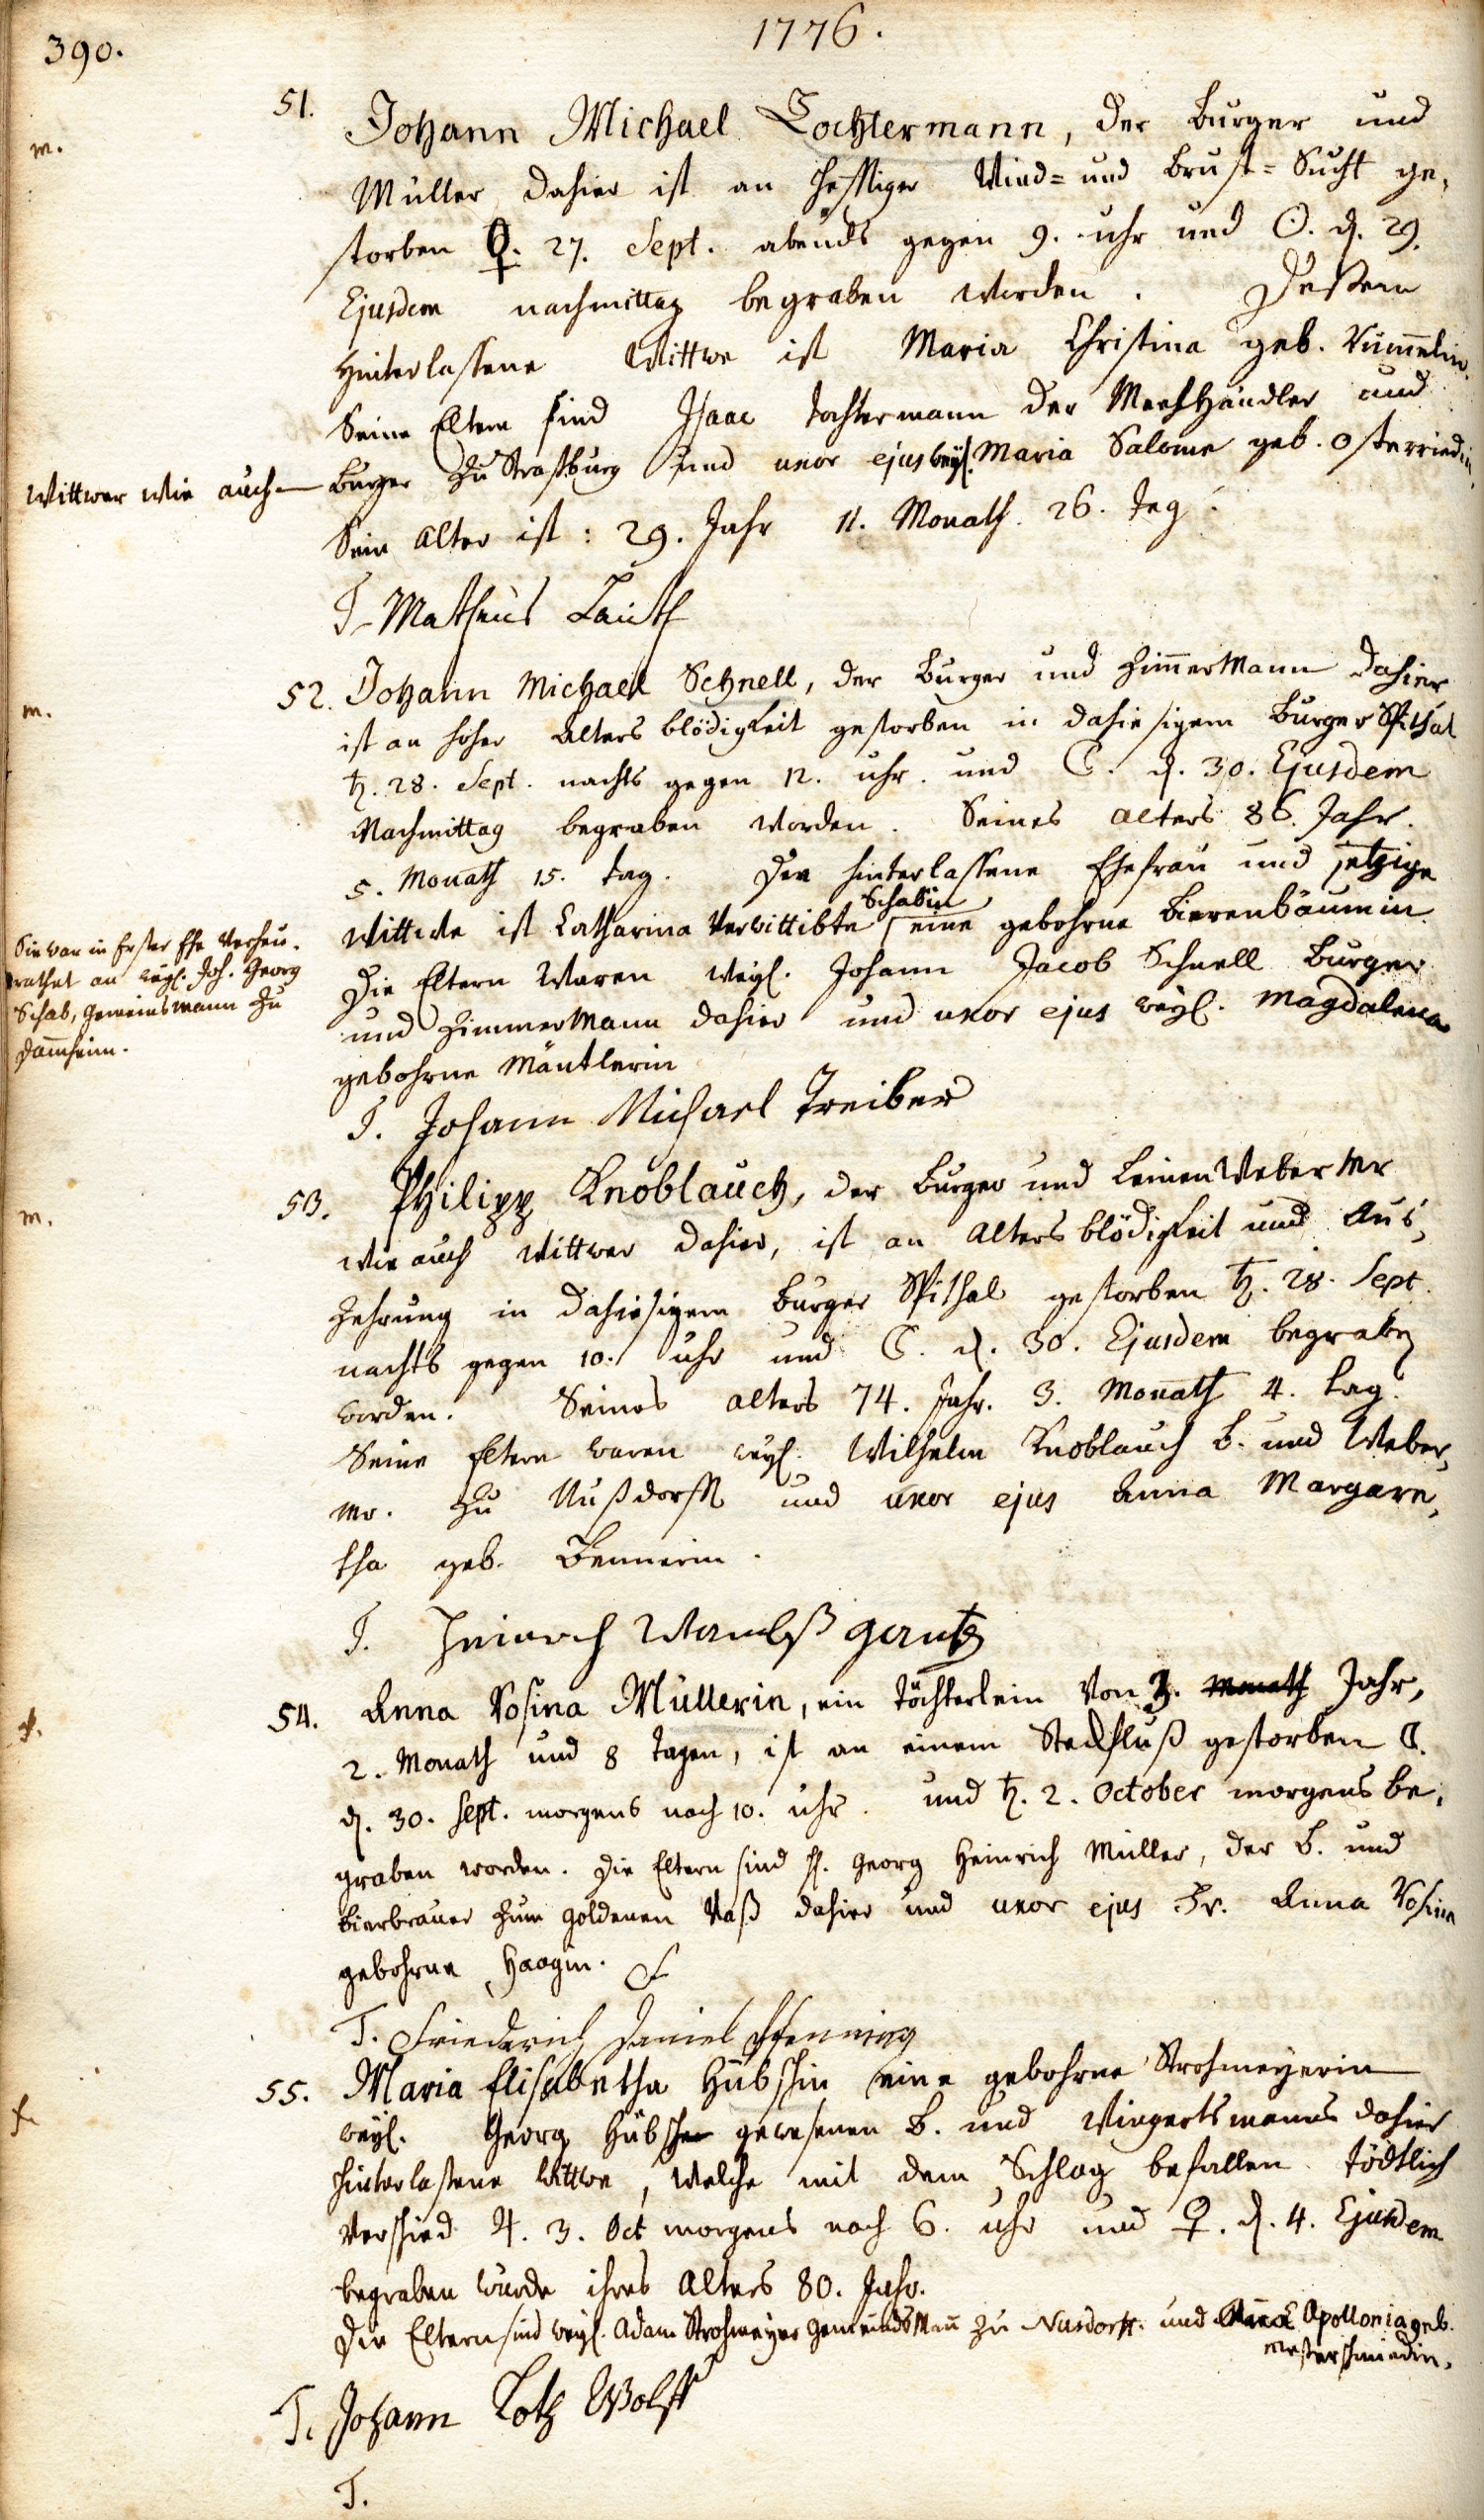 390.
1776.
51.
m.
Johann Michael Tochtermann, der Burger und
Müller dahier ist an hefftiger Wind= und Brust=Sucht ge,
storben ♀. 27. Sept. abends gegen 9. uhr und ☉. d. 29.
Ejusdem nachmittag begraben worden. Dessen
Hinterlassene Wittwe ist Maria Christina geb. Rümmelin.
Seine Eltern sind Isaac Tochtermann der Meelhändler und
Wittwer wie auch
Burger zu Straßburg und uxor ejus weyl. Maria Salome geb. Osterriedin.
Sein Alter ist: 29. Jahr 11. Monath. 26. Tag.
T. Matheus Lauth
m.
52. Johann Michael Schnell, der Burger und Zimmermann dahier
ist an hoher Alters blödigkeit gestorben in dahiesigem Burger Spithal
♄. 28. Sept. nachts gegen 12. uhr. und ☾. d. 30. Ejusdem
Nachmittag begraben worden. Seines alters 86. Jahr.
5. Monath 15. tag. Die hinterlassene Ehefrau und jetzige
Schabin
Wittwe ist Catharina Verwittibte eine gebohrne Bierenbäumin
Sie war in Erster Ehe Verheu-
rathet an weyl. Joh. Georg
Schab, Gemeinsmann zu
Dammheim.
Die Eltern Waren weyl. Johann Jacob Schnell Burger
und Zimmermann dahier und uxor ejus weyl. Magdalena
gebohrne Mäntlerin
T. Johann Michael Treiber
m.
53. Philipp Knoblauch, der Burger und Leinenweber Mr
wie auch Wittwer dahier, ist an Alters blödigkeit und Aus,
zehrung in dahiesigem Burger Spithal gestorben ♄. 28. Sept.
nachts gegen 10. uhr und ☾. d. 30. Ejusdem begraben
worden. Seines alters 74. Jahr. 3. Monath 4. tag.
Seine Eltern waren weyl. Wilhelm Knoblauch B. und Weber,
Mr. zu Nußdorff und uxor ejus Anna Margare,
tha geb. Bennerin.
T. Heinrich Wambsgantz
f.
54. Anna Rosina Müllerin, ein Töchterlein Von 3. Monath Jahr,
2. Monath und 8 Tagen, ist an einem Steckfluß gestorben ☾.
d. 30. Sept. morgens nach 10. uhr. und ♄. 2. October morgens be,
graben worden. Die Eltern sind H. Georg Heinrich Müller, der B. und
Bierbrauer zum goldenen Roß dahier und uxor ejus Fr. Anna Rosina
gebohrne Haagin.
T. Friederich Daniel Pfenning
f.
55. Maria Elisabetha Hübschin eine gebohrne Strohmeyerin
weyl. Georg Hübsch gewesenen B. und Wingertsmanns dahier
hinterlassene Wittwe, welche mit dem Schlag befallen tödtlich
Verschied ♃. 3. Oct morgens nach 6. uhr und ♀. d. 4. Ejusdem
begraben wurde ihres Alters 80. Jahr.
Die Eltern sind weyl. Adam Strohmeyer Gemeindsmann zu Nusdorff. und Anna Apollonia geb.
Messerschmiedin.
T. Johann Loth Wolff
T.